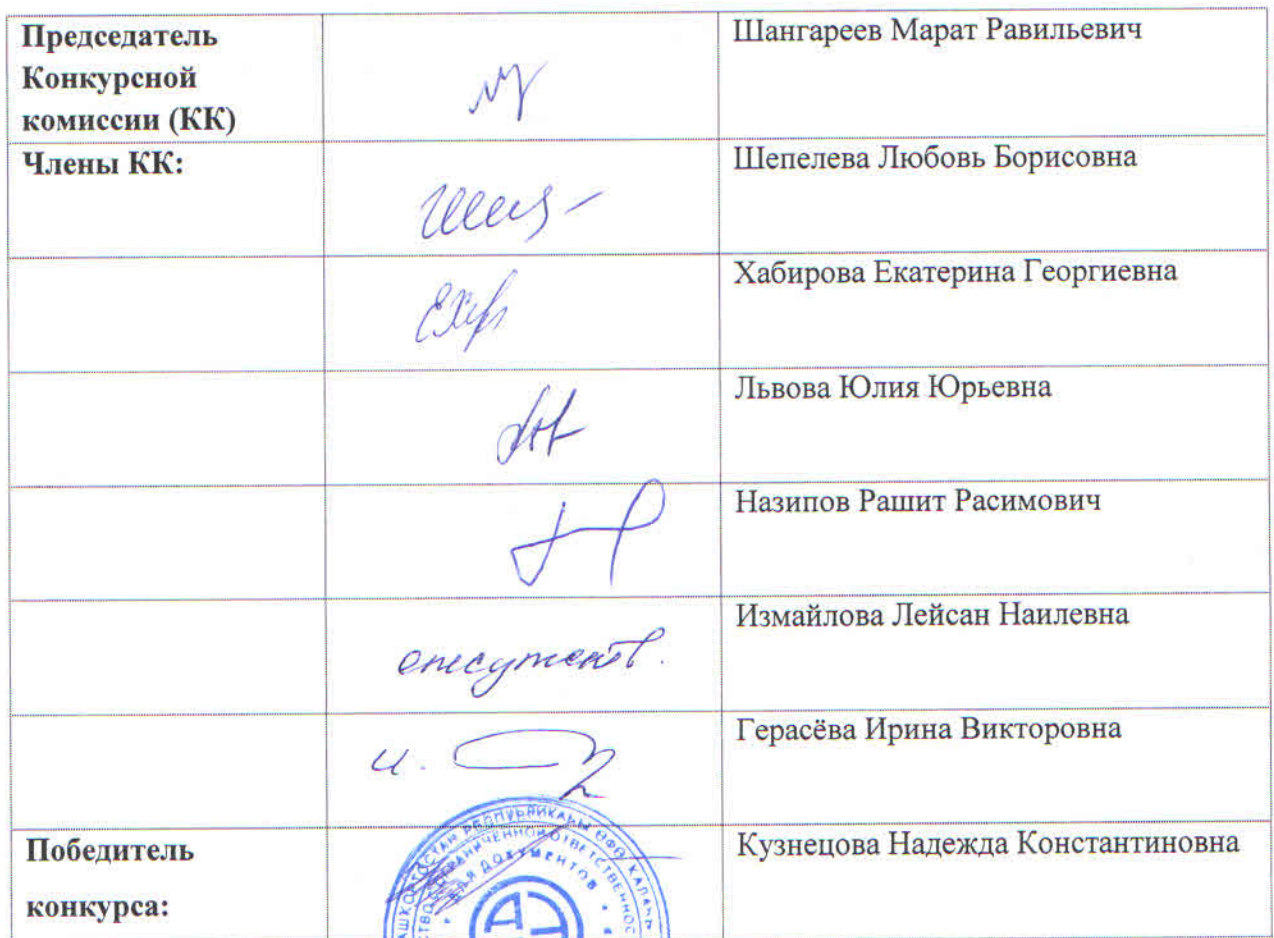 Председатель
Конкурсной
комиссии (КК)
Шангареев Марат Равильевич
Члены КК:
Шепелева Любовь Борисовна
Хабирова Екатерина Георгиевна
Львова Юлия Юрьевна
Назипов Рашит Расимович
отсутств.
Измайлова Лейсан Наилевна
Герасёва Ирина Викторовна
Победитель
конкурса:
Кузнецова Надежда Константиновна
ДЛЯ ДОКУМЕНТОВ